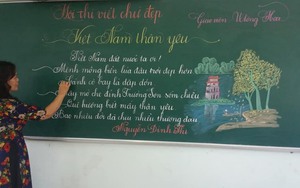 Hội thi viết chữ đẹp
Giáo viên Hoa
Việt Nam thân yêu
Việt Nam đất nước ta ơi!
Mênh mông biển lúa đâu trời đẹp hơn
cò bay lả dập dờn
mờ che đỉnh Trường Sơn sớm chiều
Quê hương biết mấy thân yêu
Bao nhiêu đời đã chịu nhiều thương đau
Nguyễn Đình Thi